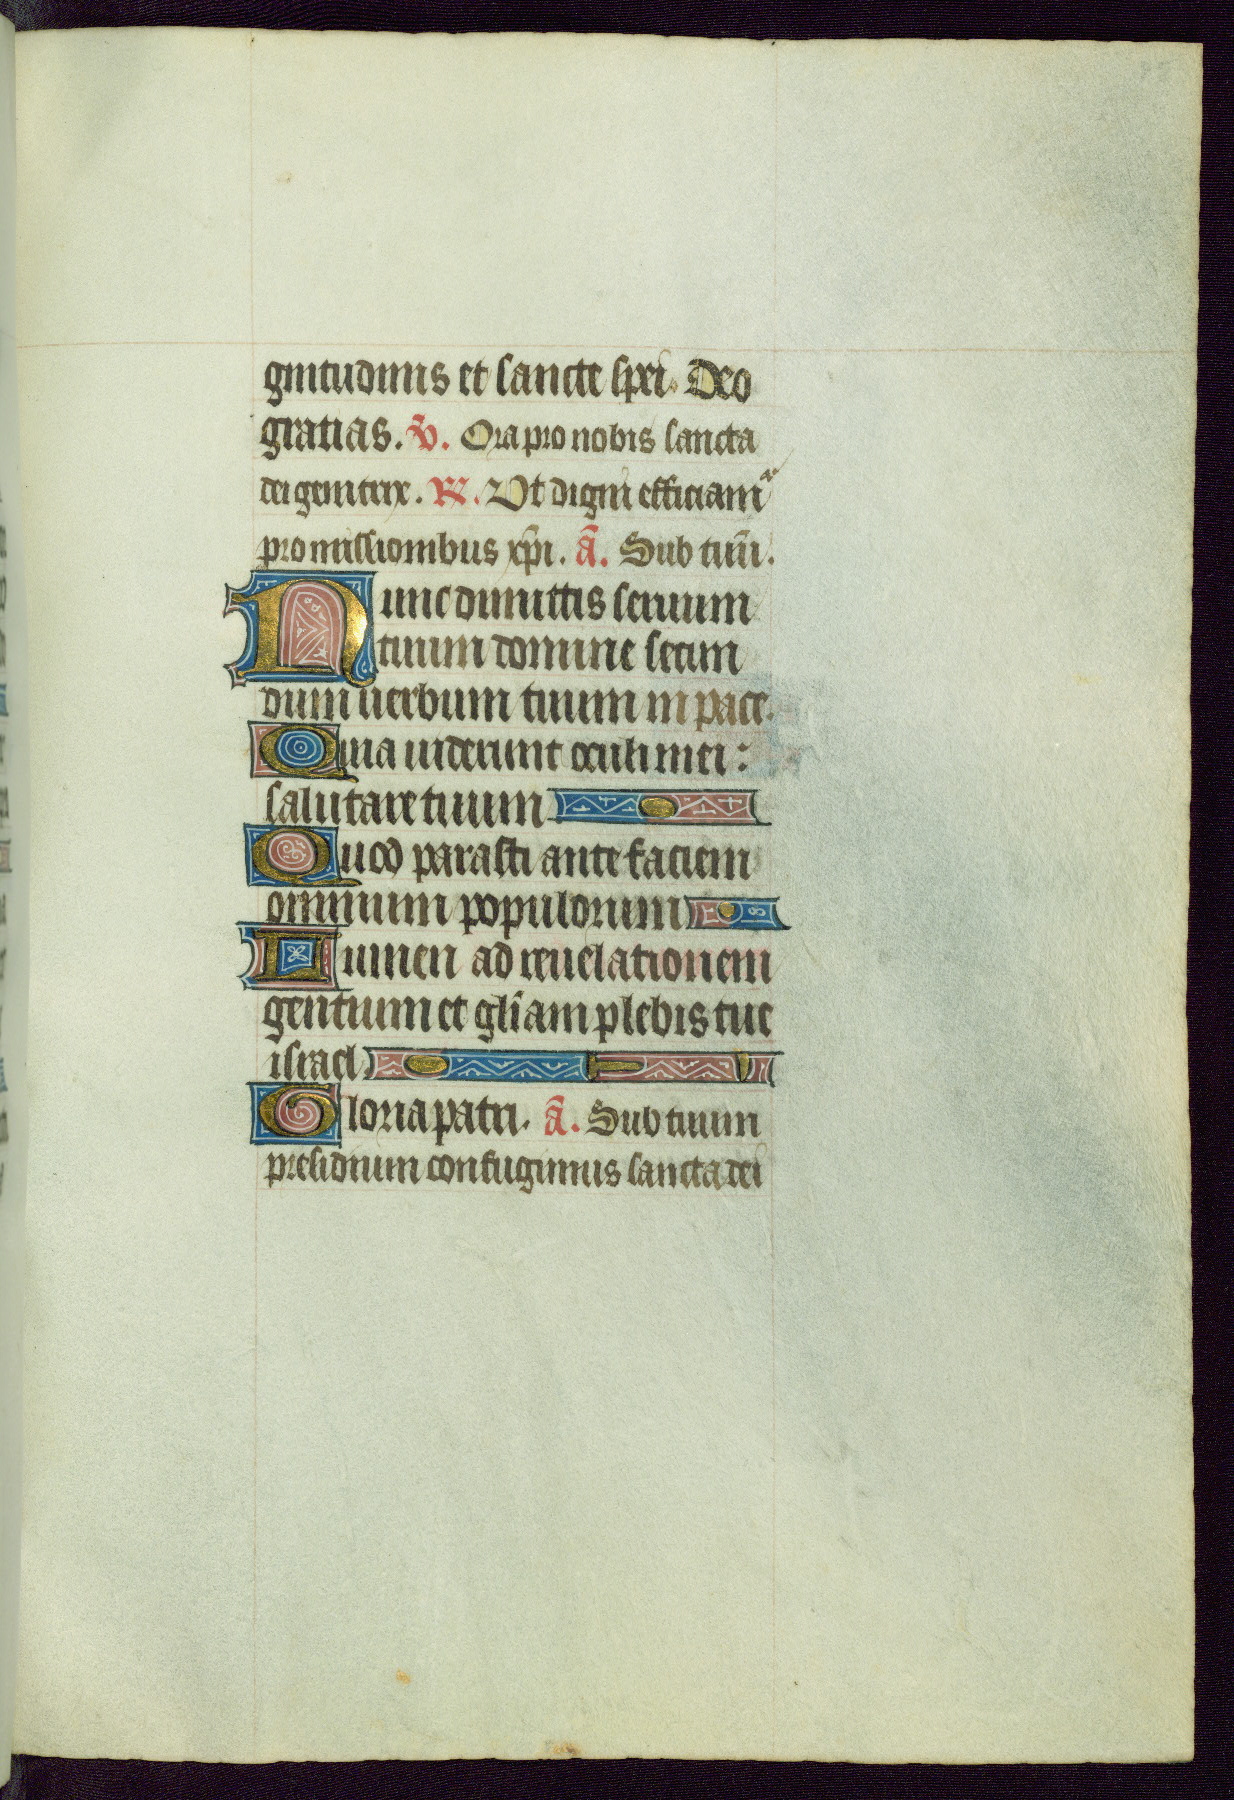 gnitudinis et sancte spei. Deo
gratias. V̄. Ora pro nobis sancta
dei genitrix. R̷. Ut digni efficiam̃
promissionibus xp̄i. ã. Sub tuū̄.
Nunc dimittis seruum
tuum domine secun
dum uerbum tuum in pace.
Quia uiderunt oculi mei:
salutare tuum
Quod parasti ante faciem
omnium populorum
Lumen ad reuelationem
gentium et gl̄iam plebis tue
israel
Gloria patri. ã. Sub tuum
presidium confugimus sancta dei